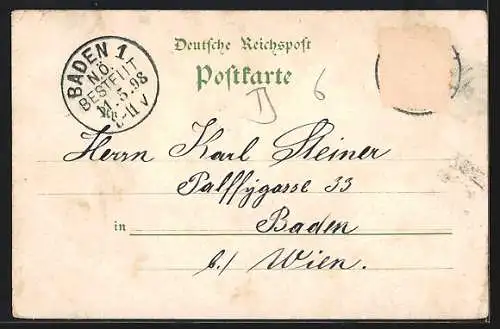 Deutsche Reichspost
Postkarte
BADEN 1
N.Ö.
BESTELLT
11.5.98
11 V
6
Herrn Karl Steiner
Palffygasse 33
in Baden
b./ Wien.